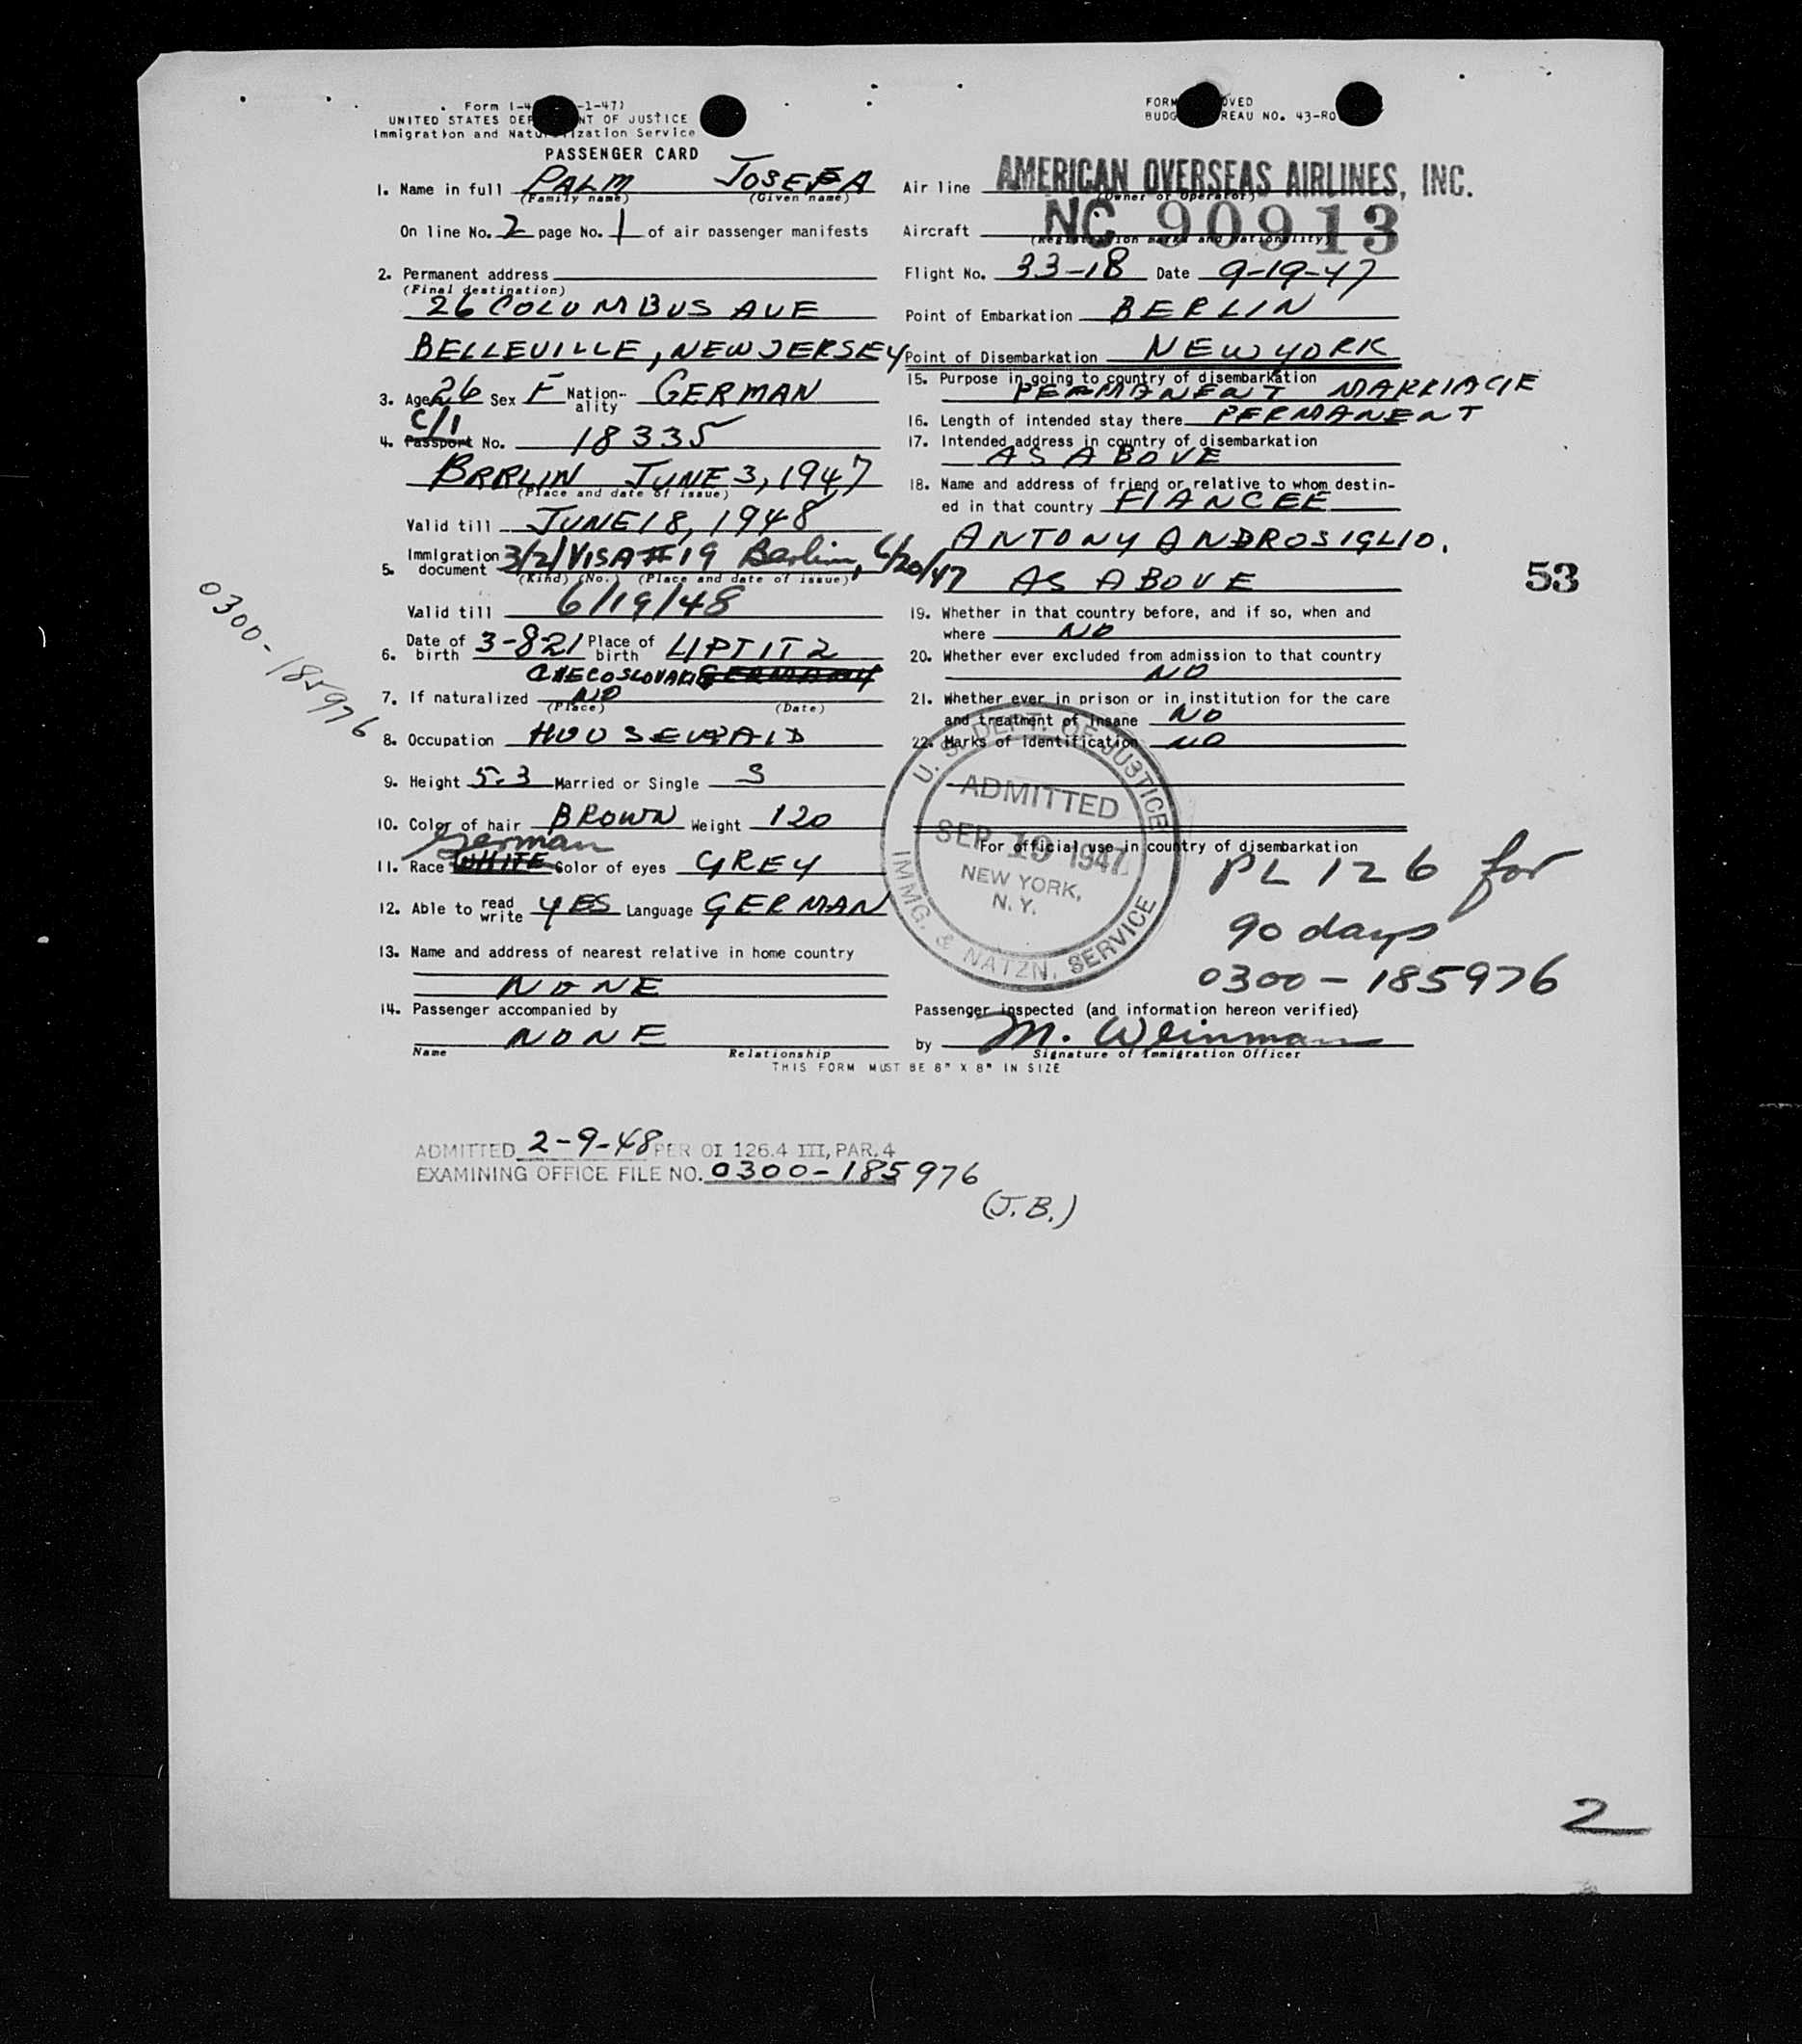 Form I-4 -1-47)
UNITED STATES DEP NT OF JUSTICE
Immigration and Natu ization Service
PASSENGER CARD
1. Name in full PALM JOSEFA
(Family name) (Given name)
On line No. 2 page No. 1 of air passenger manifests
2. Permanent address
(Final destination)
26 COLUMBUS AVE
BELLEVILLE, NEW JERSEY
3. Age 26 Sex F Nation-ality GERMAN
C/I
4. Passport No. 18335
BRRLIN JUNE 3, 1947
(Place and date of issue)
Valid till JUNE 18, 1948
5. Immigration document 3/2/VISA # 19 Berlin, 6/20/47
(Kind) (No.) (Place and date of issue)
Valid till 6/19/48
6. Date of birth 3-821 Place of birth LIPTITZ
CHECOSLOVAKI GERMANY
7. If naturalized NO
(Place) (Date)
8. Occupation HOUSEMAID
9. Height 5.3 Married or Single S
10. Color of hair BROWN Weight 120
German
11. Race WHITE Color of eyes GREY
12. Able to read write YES Language GERMAN
13. Name and address of nearest relative in home country
NONE
14. Passenger accompanied by
NONE
Name Relationship
THIS FORM MUST BE 8" X 8" IN SIZE
FORM OVED
BUDG REAU NO. 43-RO
Air line AMERICAN OVERSEAS AIRLINES, INC.
(Owner or Operator)
Aircraft NC 90913
(Registration marks and Nationality)
Flight No. 33-18 Date 9-19-47
Point of Embarkation BERLIN
Point of Disembarkation NEW YORK
15. Purpose in going to country of disembarkation
PERMANENT MARRIAGE
16. Length of intended stay there PERMANENT
17. Intended address in country of disembarkation
AS ABOVE
18. Name and address of friend or relative to whom destin-
ed in that country FIANCEE
ANTONY ANDROSIGLIO.
AS ABOVE
53
19. Whether in that country before, and if so, when and
where NO
20. Whether ever excluded from admission to that country
NO
21. Whether ever in prison or in institution for the care
and treatment of insane NO
22. Marks of identification NO
U. S. DEPT. OF JUSTICE
ADMITTED
SEP 19 1947
NEW YORK,
N. Y.
IMMG. & NATZN. SERVICE
For official use in country of disembarkation
PL 126 for
90 days
0300-185976
Passenger inspected (and information hereon verified)
by M. Weinman
Signature of Immigration Officer
0300-185976
ADMITTED 2-9-48 PER OI 126.4 III, PAR. 4
EXAMINING OFFICE FILE NO. 0300-185976
(J.B.)
2